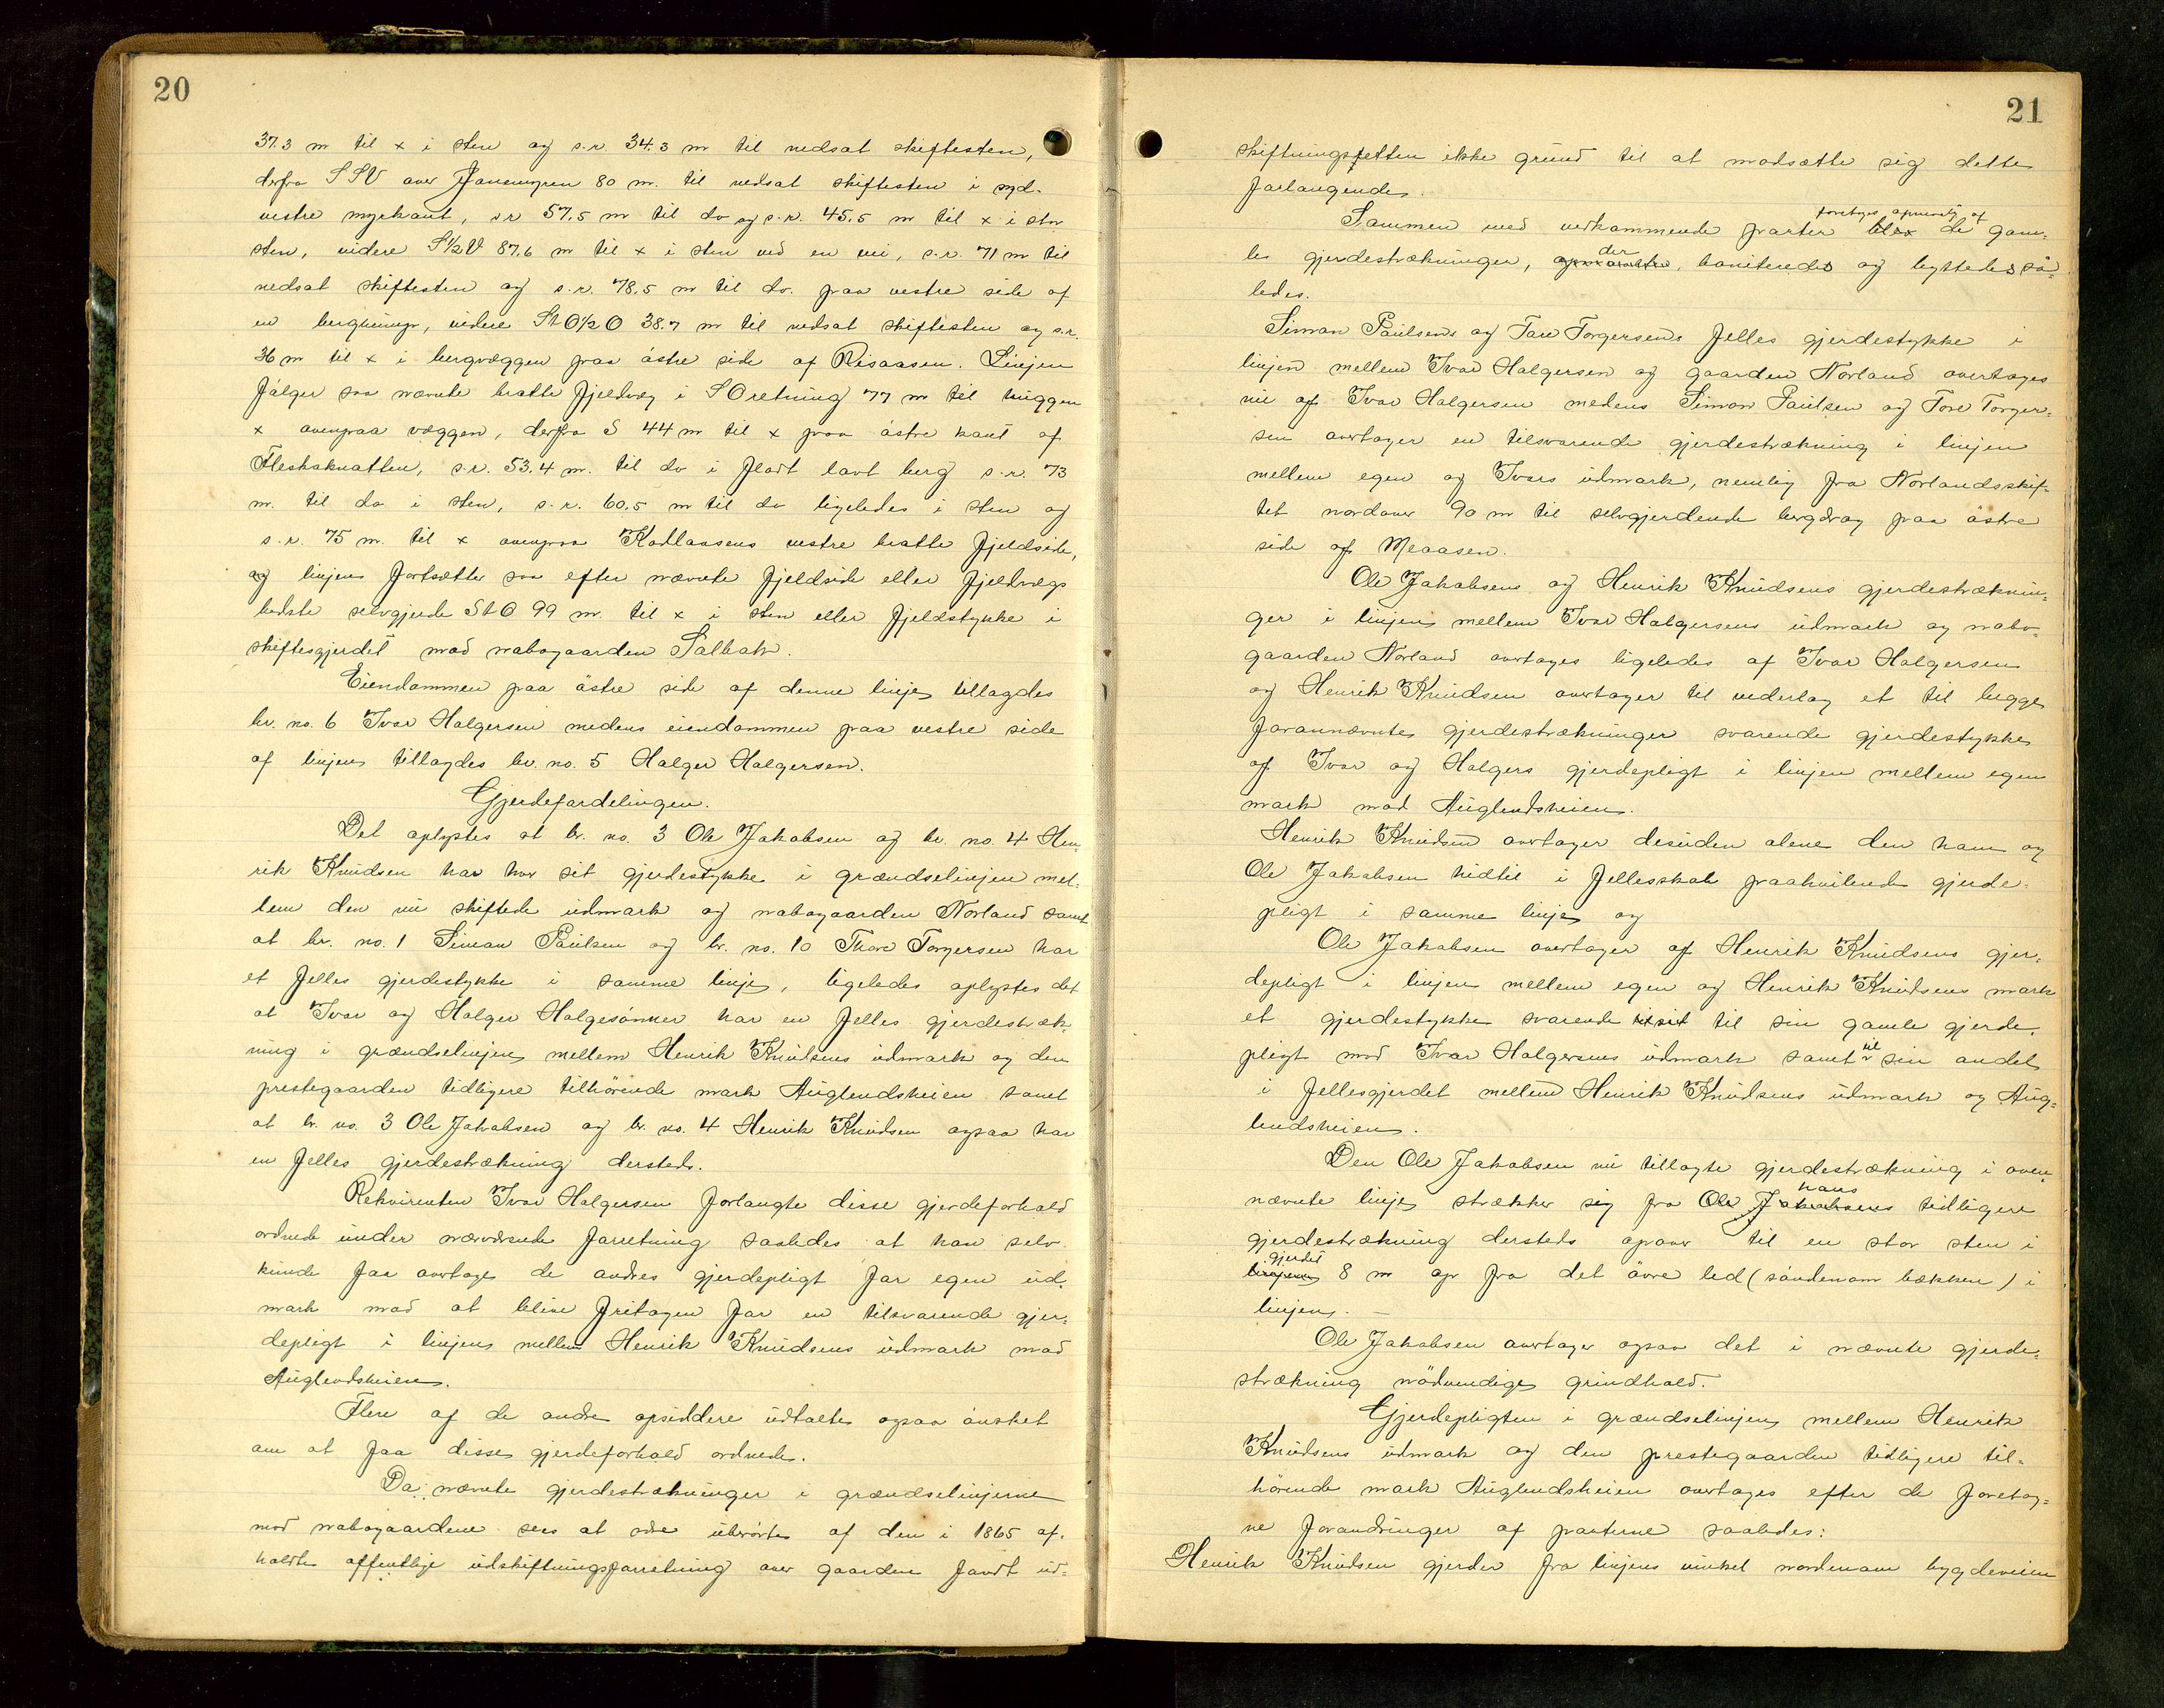 20
37.3 m til x i sten og s.r. 34.3 m til nedsat skiftesten,
derfra SSV over Jansmyren 80 m. til nedsat skiftesten i syd-
vestre myrkant, s.r. 57,5 m til do og s.r. 45.5 m til x i stor
sten, videre S½V 87,6 m til x i sten ved en vei, s.r. 71 m til
nedsat skiftesten og s.r. 78,5 m til do. paa vestre side af
en bergknup, videre StO½O 38.7 m til nedsat skiftesten og s.r.
36 m til x i bergvæggen paa östre side af Risaasen. Linjen
fölger saa nævnte bratte fjeldvæg i SO retning 77 m til huggen
x ovenpaa væggen, derfra S 44 m til x paa östre kant af
Fleskaknatten, s.r. 53.4 m. til do i fladt lavt berg s.r. 73
m. til do i sten, s.r. 60,5 m til do ligeledes i sten og
s.r. 75 m. til x ovenpaa Kadlaasens vestre bratte fjeldside,
og linjen fortsætter saa efter nævnte fjeldside eller fjeldvægs
bedste selvgjerde StO 99 m. til x i sten eller fjeldstykke i
skiftesgjerdet mod nabogaarden Salbak.
Eiendommen paa östre side af denne linje tillagdes
br. no. 6 Ivar Halgersen medens eiendommen paa vestre side
af linjen tillagdes br. no. 5 Halger Halgersen.
Gjerdefordelingen.
Det oplystes at br. no. 3 Ole Jakobsen og br. no. 4 Hen-
rik Knudsen har hver sit gjerdestykke i grændselinjen mel-
lem den nu skiftede udmark og nabogaarden Norland samt
at br. no. 1 Simon Paulsen og br. no. 10 Thore Torgersen har
et fælles gjerdestykke i samme linje, ligeledes oplystes det
at Ivar og Halger Halgesönner har en fælles gjerdestræk-
ning i grændselinjen mellem Henrik Knudsens udmark og den
prestegaarden tidligere tilhörende mark Auglendsheien samt
at br. no. 3 Ole Jakobsen og br. no. 4 Henrik Knudsen ogsaa har
en fælles gjerdestrækning dersteds.
Rekvirenten Ivar Halgersen forlangte disse gjerdeforhold
ordnede under nærværende forretning saaledes at han selv
kunde faa overtage de andres gjerdepligt for egen ud-
mark mod at blive fritagen for en tilsvarende gjer-
depligt i linjen mellem Henrik Knudsens udmark mod
Auglendsheien.
Flere af de andre opsiddere udtalte ogsaa önsket
om at faa disse gjerdeforhold ordnede.
Da nævnte gjerdestrækninger i grændselinjerne
mod nabogaardene sees at være uberörte af den i 1865 af-
holdte offentlige udskiftningsforretning over gaarden fandt ud-
21
skiftningsretten ikke grund til at modsætte sig dette
forlangende.
foretoges opmaaling af
Sammen med vedkommende parter de gam-
der
le gjerdestrækninger, boniteredes og byttedes så-
ledes.
Simon Paulsens og Tore Torgersens fælles gjerdestykke i
linjen mellem Ivar Halgersen og gaarden Norland overtages
nu af Ivar Halgersen medens Simon Paulsen og Tore Torger-
sen overtager en tilsvarende gjerdestrækning i linjen
mellem egen og Ivars udmark, nemlig fra Norlandsskif-
tet nordover 90 m til selvgjerdende bergdrag paa östre
side af Meaasen.
Ole Jakobsens og Henrik Knudsens gjerdestræknin-
ger i linjen mellem Ivar Halgersens udmark og nabo-
gaarden Norland overtages ligeledes af Ivar Halgersen
og Henrik Knudsen overtager til vederlag et til begge
forannævnte gjerdestrækninger svarende gjerdestykke
af Ivar og Halgers gjerdepligt i linjen mellem egen
mark mod Auglendsheien.
Henrik Knudsen overtager desuden alene den ham og
Ole Jakobsen hidtil i fællesskab paahvilende gjerde-
pligt i samme linje og
Ole Jakobsen overtager af Henrik Knudsens gjer-
depligt i linjen mellem egen og Henrik Knudsens mark
et gjerdestykke svarende til sin gamle gjerde-
pligt mod Ivar Halgersens udmark samt til sin andel
i fællesgjerdet mellem Henrik Knudsens udmark og Aug-
lendsheien.
Den Ole Jakobsen nu tillagte gjerdestrækning i oven-
nævnte linje strækker sig fra Ole Jakobsens hans tidligere
gjerdestrækning dersteds opover til en stor sten i
gjerdet
linjen 8 m op fra det övre led (söndenom bækken) i
linjen. —
Ole Jakobsen overtager ogsaa det i nævnte gjerde-
strækning nödvendige grindhold.
Gjerdepligten i grændselinjen mellem Henrik
Knudsens udmark og den prestegaarden tidligere til-
hörende mark Auglendsheien overtages efter de foretag-
ne forandringer af parterne saaledes:
Henrik Knudsen gjerder fra linjens vinkel nordenom bygdeveien